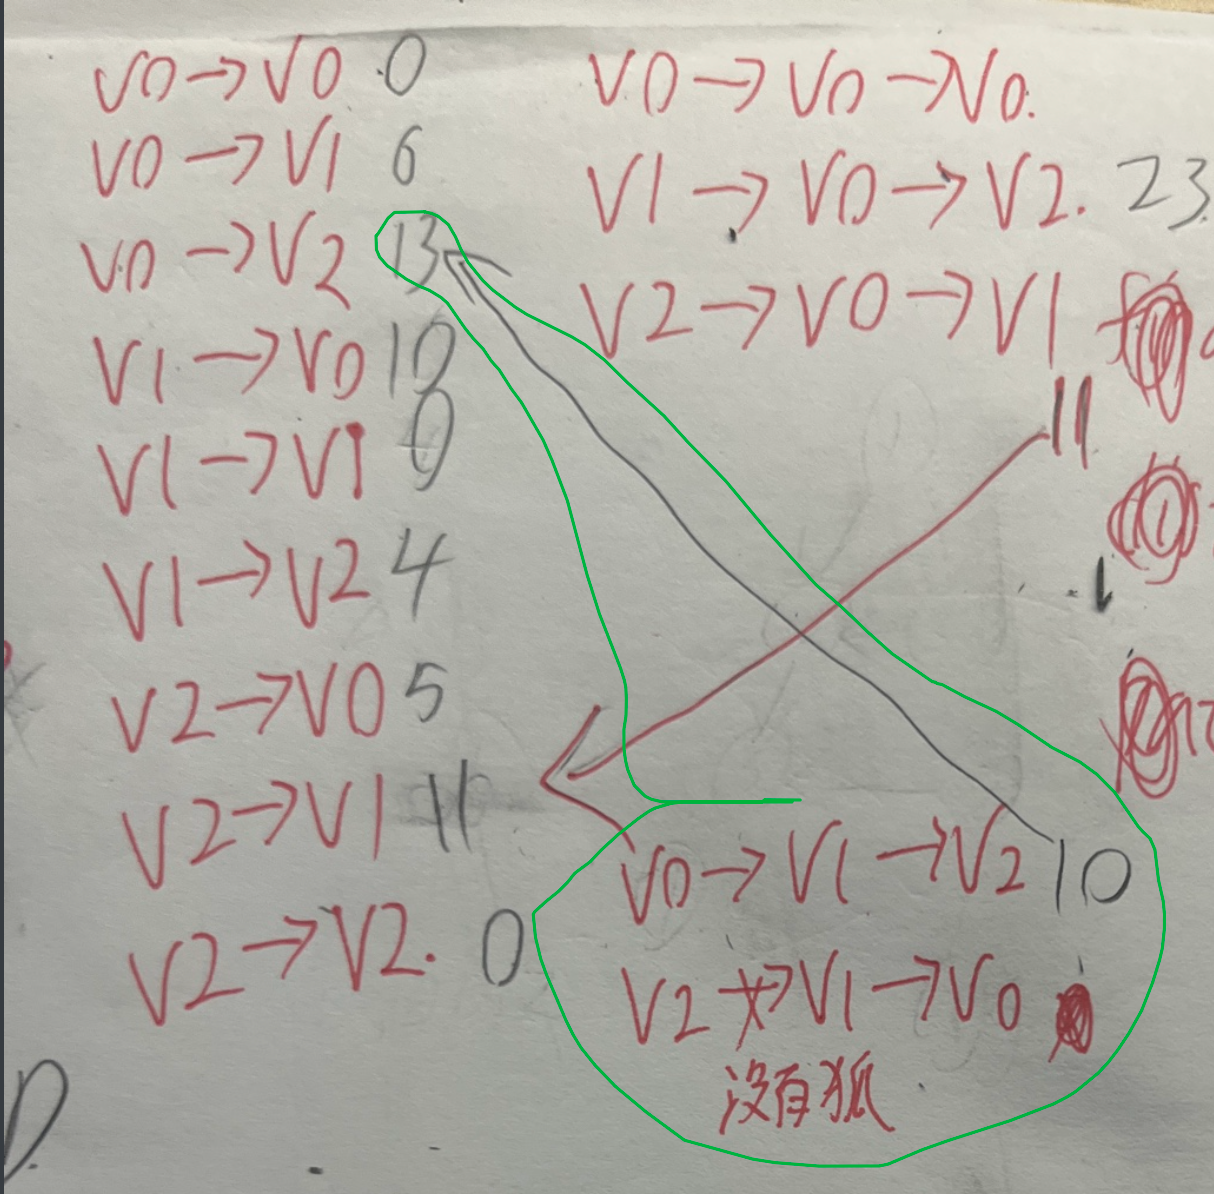 V0→V0 0
V0→V1 6
V0→V2 13
V1→V0 10
V1→V1 0
V1→V2 4
V2→V0 5
V2→V1 11
V2→V2. 0
D.
V0→V0→V0.
V1→V0→V2. 23.
V2→V0→V1
11
V0→V1→V2 10
V2→V1→V0
没有狐